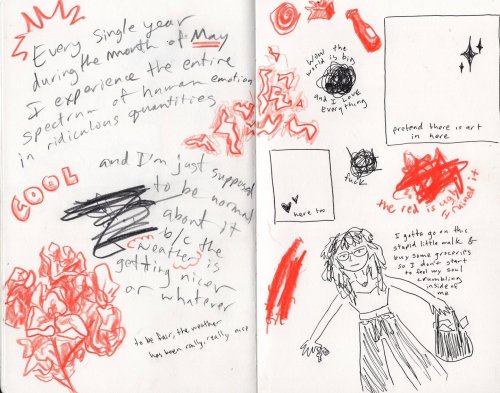 Every single year
during the month of May
I experience the entire
spectrum of human emotion
in ridiculous quantities
COOL
and I'm just supposed
to be normal
about it
b/c the
weather is
getting nicer
or whatever
to be fair, the weather
has been really, really nice
Wow the
world is big
and I love
everything
pretend there is art
in here
here too
fuck
the red is ugly
I ruined it
I gotta go on this
stupid little walk &
buy some groceries
so I don't start
to feel my soul
crumbling
inside of
me